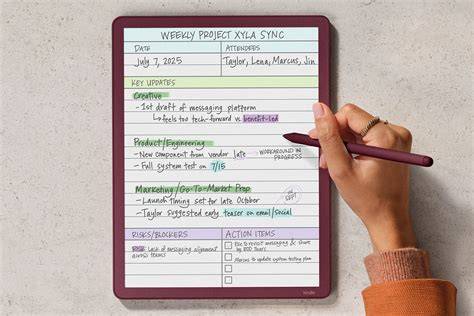 WEEKLY PROJECT XYLA SYNC
DATE
ATTENDEES
July 7, 2025
Taylor, Lena, Marcus, Jin
KEY UPDATES
Creative
- 1st draft of messaging platform
↳ feels too tech-forward vs benefit-led
Product/Engineering
- New component from vendor late
WORKAROUND IN
PROGRESS
- Full system test on 7/15
Marketing/Go-To-Market Prep
- Launch timing set for late October
- Taylor suggested early teaser on email/social
RISKS/BLOCKERS
ACTION ITEMS
RISK: Lack of messaging alignment
across teams
to revisit messaging & share
by EOD
Marcus to update system testing plan
kindle